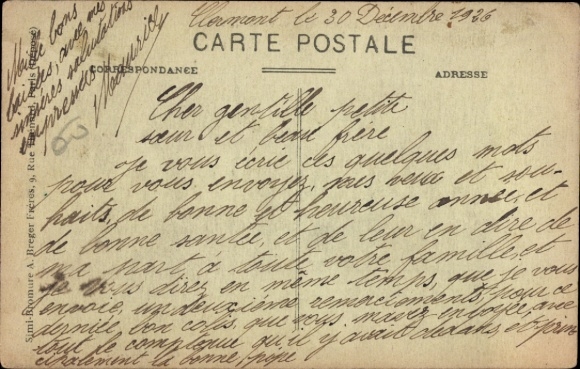 Clermont le 30 Décembre 1926
CARTE POSTALE
CORRESPONDANCE
ADRESSE
Cher gentille petite
sœur et beau frère
Je vous écrie ces quelques mots
pour vous envoyez, mes vœux et sou-
haits, de bonne et heureuse année, et
de bonne santée, et de leur en dire de
ma part à toute votre famille, et
je vous direz en même temps, que je vous
envoie, un deuxième remerciements, pour ce
dernile, bon colis, que vous mavez envoyé, avec
tout de complaue qu'il y avait dedans et prin
cipalement la bonne, pipe
bons
baisers, avec mes
sincères salutations
Maurice
Semi-Bromure A. Breger Frères, 9, Rue